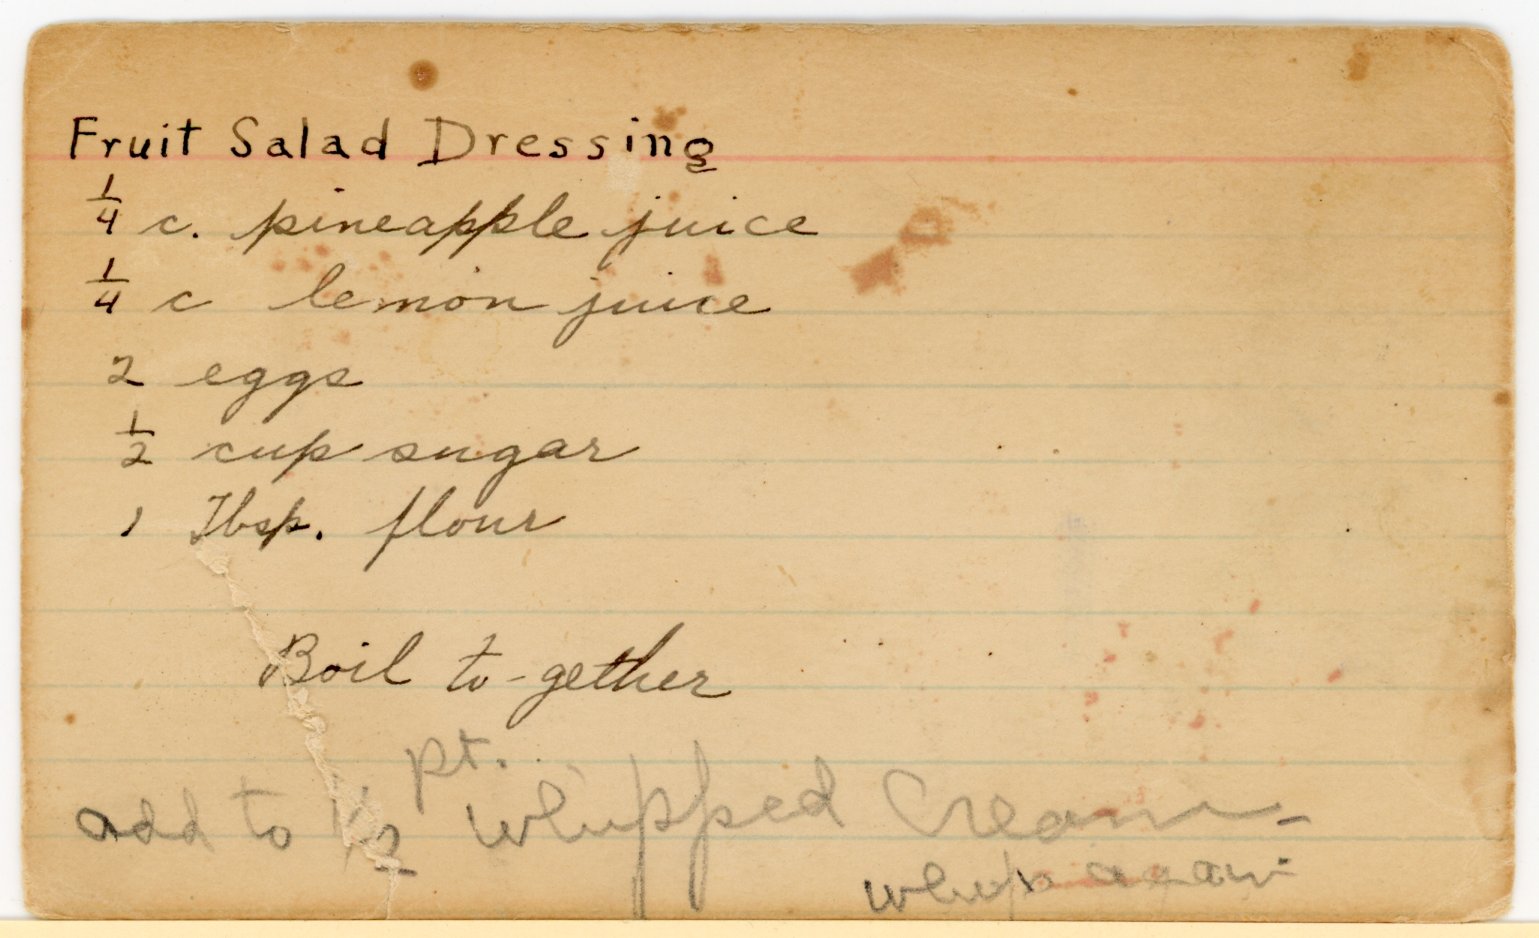 Fruit Salad Dressing
1/4 c. pineapple juice
1/4 c lemon juice
2 eggs
1/2 cup sugar
1 Tbsp. flour
Boil to-gether
pt.
add to 1/2 whipped Cream-
whip again